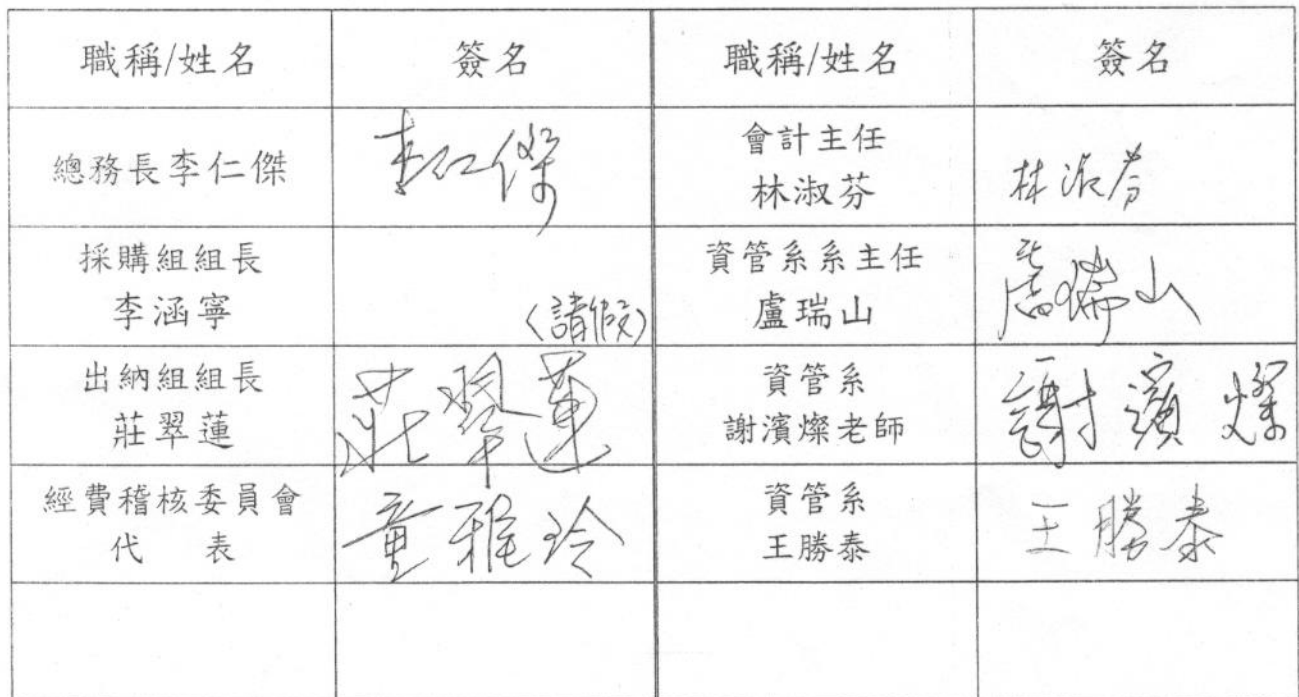 職稱/姓名 簽名 職稱/姓名 簽名
總務長李仁傑 李仁傑 會計主任
林淑芬 林淑芬
採購組組長
李涵寧 (請假) 資管系系主任
盧瑞山 盧瑞山
出納組組長
莊翠蓮 莊翠蓮 資管系
謝濱燦老師 謝濱燦
經費稽核委員會
代 表 童雅玲 資管系
王勝泰 王勝泰